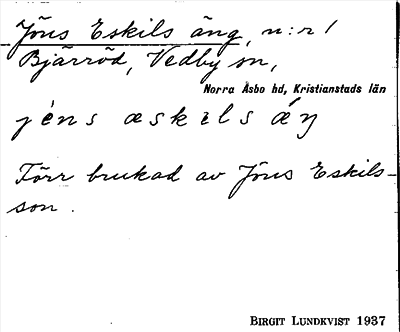 Jöns Eskils äng, n:r 1
Bjärröd, Vedby sn,
Norra Åsbo hd, Kristianstads län
jèns æskils ǽŋ
Förr brukad av Jöns Eskils-
son.
BIRGIT LUNDKVIST 1937